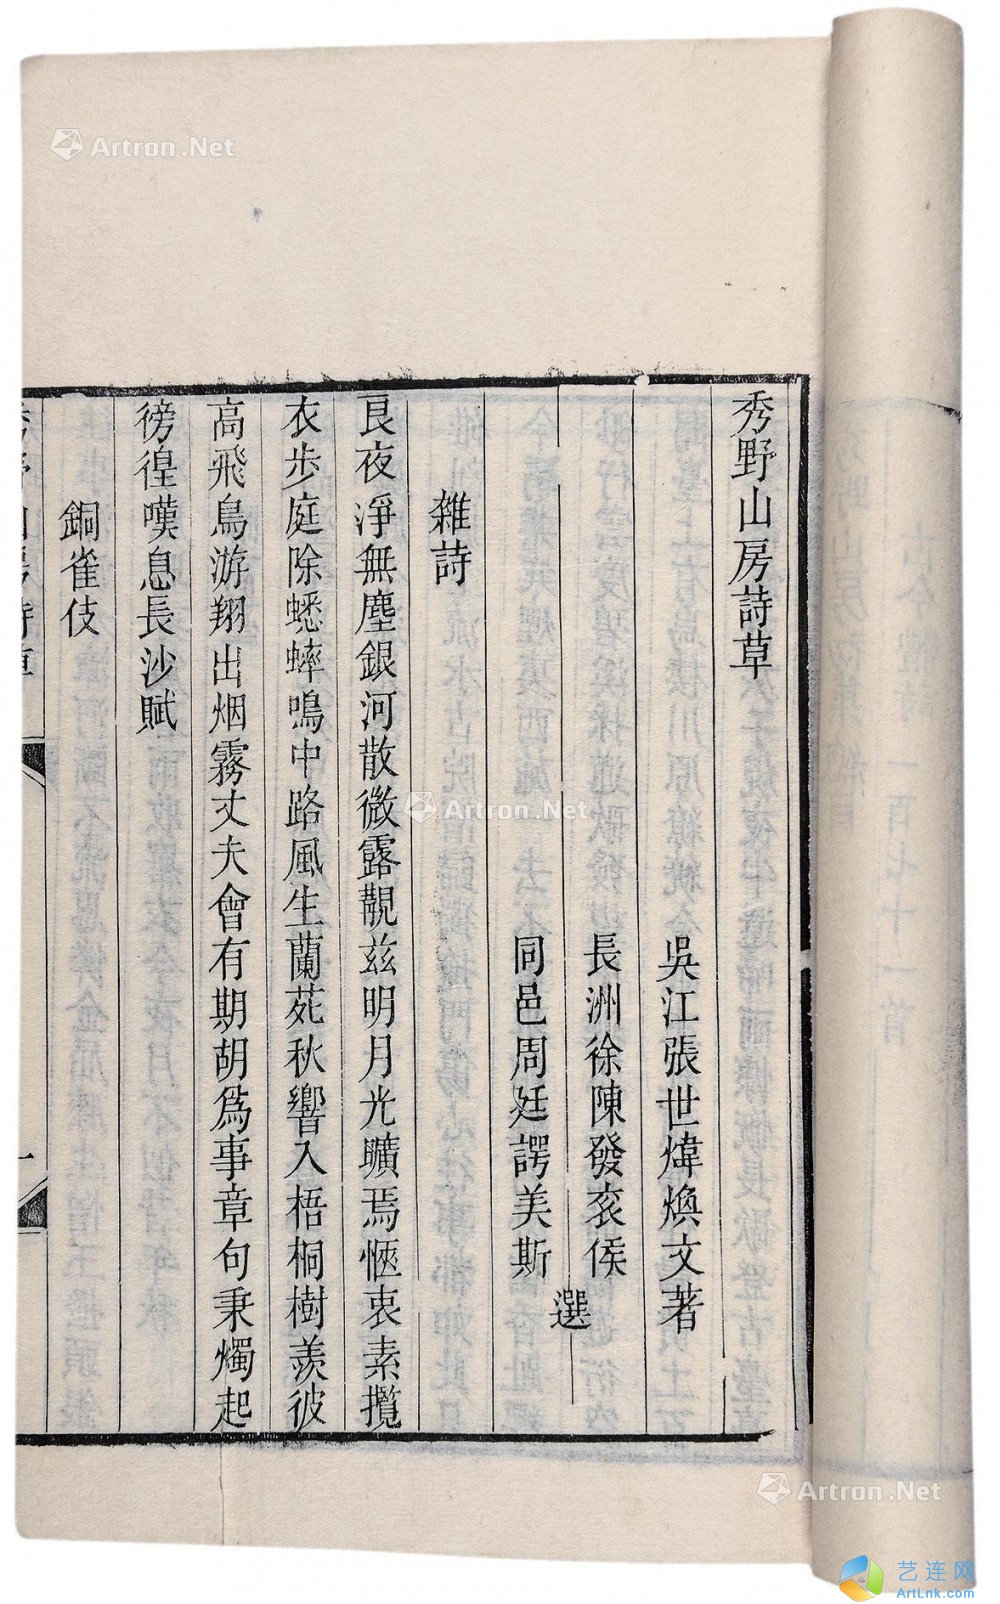 秀野山房詩草
吳江張世煒煥文著
長洲徐陳發衮侯
同邑周廷諤美斯
選
雜詩
良夜淨無塵銀河散微露覯兹明月光曠焉愜衷素攬
衣步庭除蟋蟀鳴中路風生蘭苑秋響入梧桐樹羨彼
高飛鳥游翔出烟霧丈夫會有期胡爲事章句秉燭起
徬徨嘆息長沙賦
銅雀伎
Artron.Net
Artron.Net
Artron.Net
艺连网
ArtLnk.com